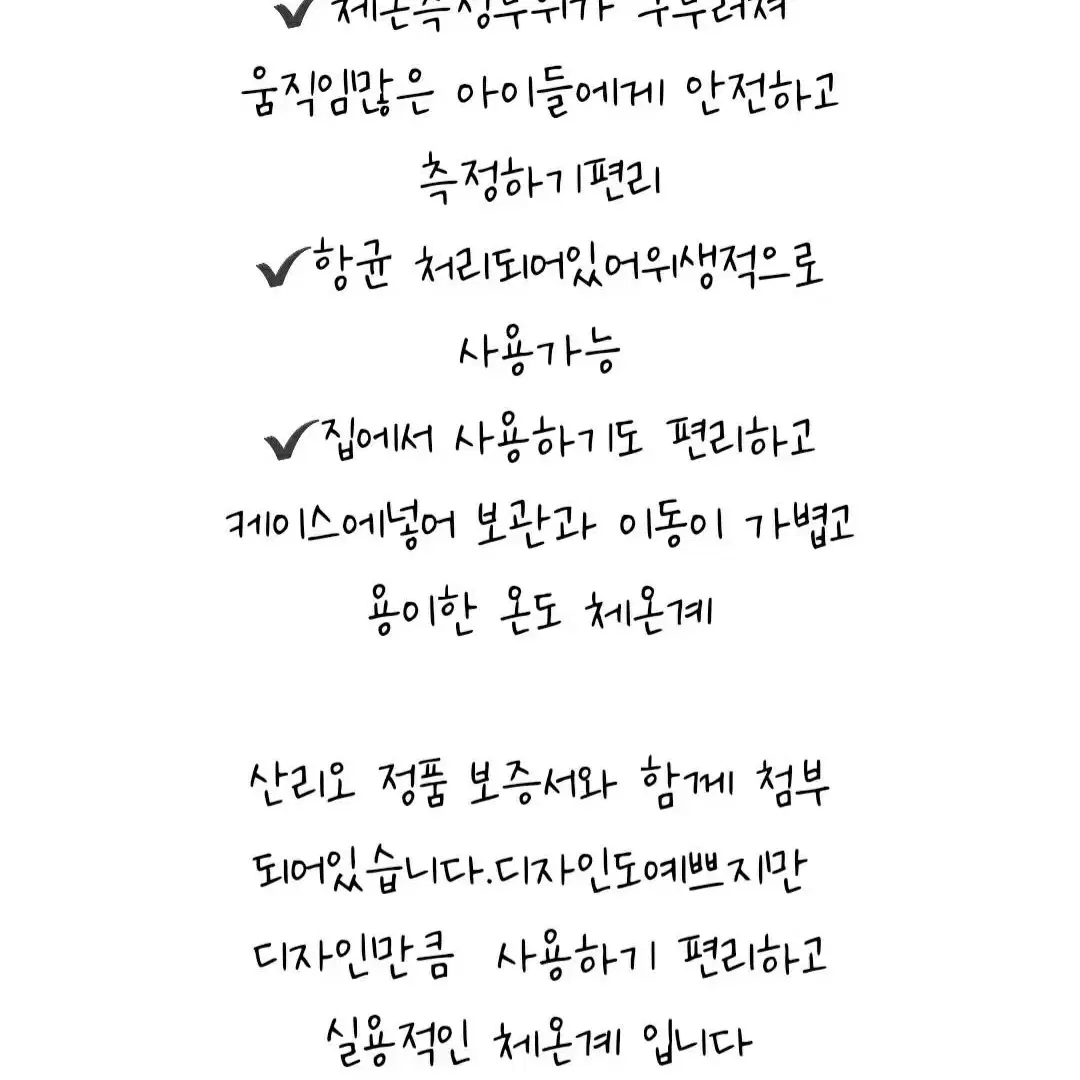 ✔체온측정부위가 구부러져
움직임많은 아이들에게 안전하고
측정하기편리
✔항균 처리되어있어위생적으로
사용가능
✔집에서 사용하기도 편리하고
케이스에넣어 보관과 이동이 가볍고
용이한 온도 체온계
산리오 정품 보증서와 함께 첨부
되어있습니다.디자인도예쁘지만
디자인만큼 사용하기 편리하고
실용적인 체온계 입니다